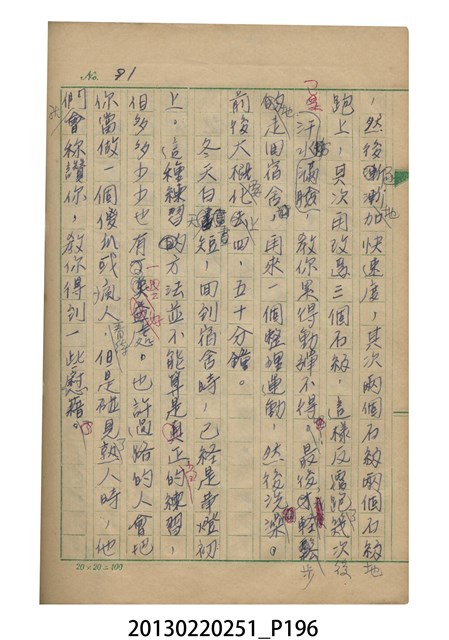 No. 91
，然後漸漸地加快速度，其次兩個石級兩個石級地
跑上，其次用改為三個石級，這樣反覆跑幾次後，
汗水滿臉，教你累得動彈不得。最後才輕鬆步
的走回宿舍，再來一個整理運動，然後洗澡。
前後大概化去四，五十分鐘。
冬天白天短，回到宿舍時，已經是華燈初
上。這種練習的方法並不能算是真正的練習，
但多多少少也有一點益處。也許過路的人會把
你當做一個傻瓜或瘋人，但是碰見熟人時，他
們會称讚你，教你得到一些慰藉。
20×20=400
20130220251_P196